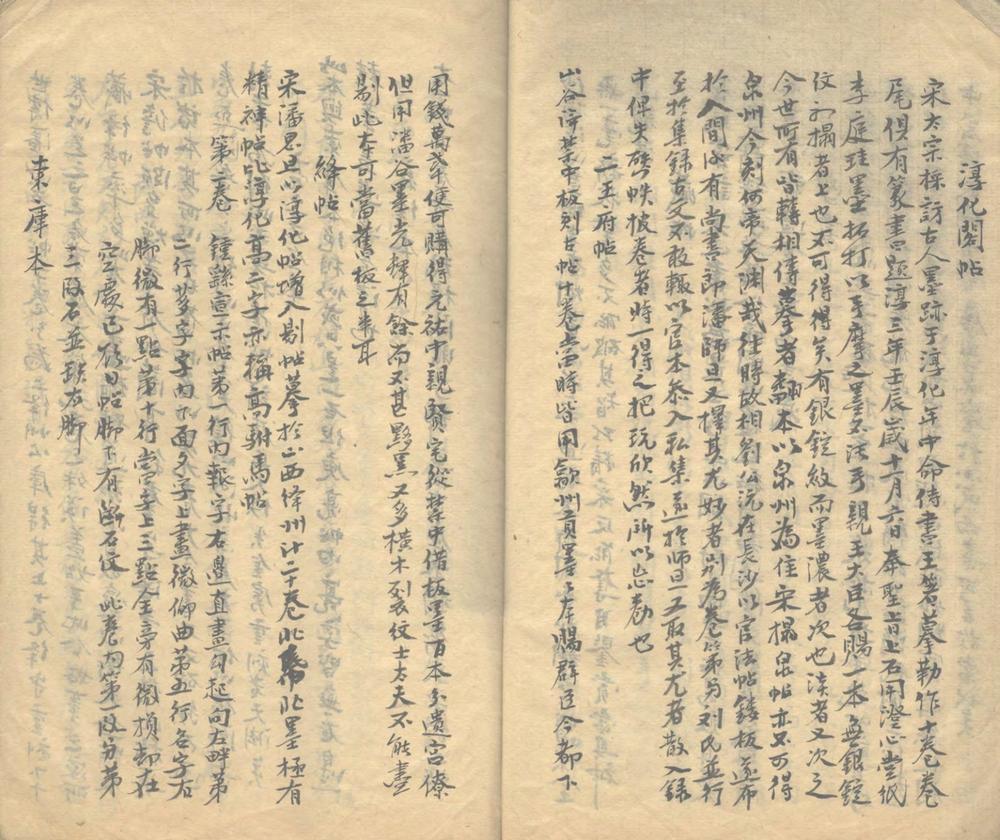 淳化閣帖
宋太宗採訪古人墨跡于淳化年中命侍書王著摹勒作十卷卷
尾俱有篆書題淳三年壬辰歲十一月六日奉聖旨上石用澄心堂紙
李庭珪墨拓打以手摩之墨不污手親王大臣各賜一本無銀錠
紋初搨者上也不可得矣有銀錠紋而墨濃者次也淡者又次之
今世所有皆轉相傳摹者翻本以泉州為佳宋搨泉帖亦不可得
泉州今刻何啻天淵哉往時故相劉公沆在長沙以官法帖鏤板遂布
於人間後有尚書郎潘師旦又擇其尤妙者別為卷第與劉氏並行
至於集錄古文不敢輒以官本參入私集遂於師旦又取其尤者散入錄
中俾夫啓帙披卷者時一得之把玩欣然所以忘勌也
二王府帖
山谷所禁中板刻古帖十卷當時皆用歙州貢墨墨本賜群臣今都下
用錢萬貳千便可購得元祐中親賢宅從禁中借板墨百本分遺宮僚
但用潘谷墨光輝有餘而不甚黟黑又多橫木裂紋士大夫不能盡
別此本可當舊板之半耳
絳帖
宋潘思旦以淳化帖增入別帖摹於山西絳州計二十卷北紙北墨極有
精神帖比淳化高二字亦稱為駙馬帖
第二卷 鍾繇宣示帖第一行內報字右邊直畫勾起向左畔第
二行芻字字內下面夕字上畫微仰曲第五行名字右
脚微有一點第十行當字上三點全旁有微損却在
空處已後日帖脚下有斷石紋 此卷內第一段與第
三段石並缺左脚
東庫本